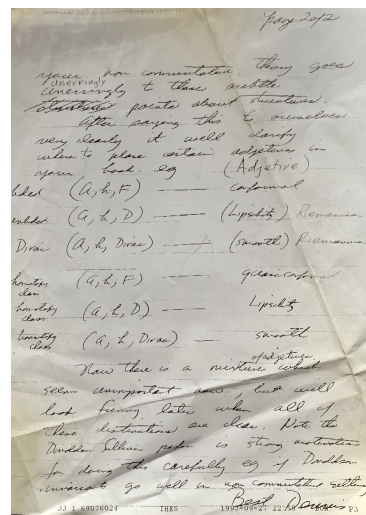 page 2 of 2
your non commutative thong goes
unerringly
unerringly to these subtle
points about structures.
After saying this to ourselves
very clearly it will clarify
where to place certain adjectives in
your book. eg (Adjetive)
(a, h, F) —— coformal
(a, h, D) —— (Lipshitz) Riemannian
Dirac (a, h, Dirac) —— (smooth) Riemannian
homotopy class (a, h, F) —— quasiconformal
homotopy class (a, h, D) —— Lipshitz
homotopy class (a, h, Dirac) —— smooth
of adjetives
Now there is a mixture which
seems unimportant now, but will
look funny later when all of
these distinctions are clear. Note the
Donaldson Sullivan paper is strong motivation
for doing this carefully eg if Donaldson
invariants go well in non commutative setting
Best Dennis
33 1 69076024 IHES 1993-09-27 22: P3